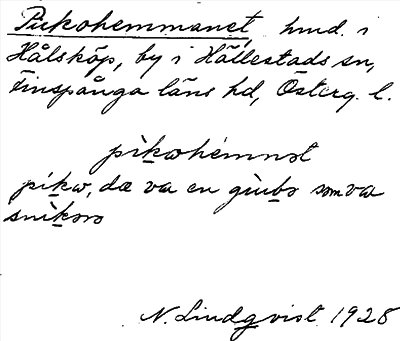 Pukohemmanet, hmd. i
Hålsköp, by i Hällestads sn,
Finspånga läns hd, Österg. l.
pìkωhémnət
píkω, dæ va en gùbə som va
snìkərə
N. Lindqvist 1928